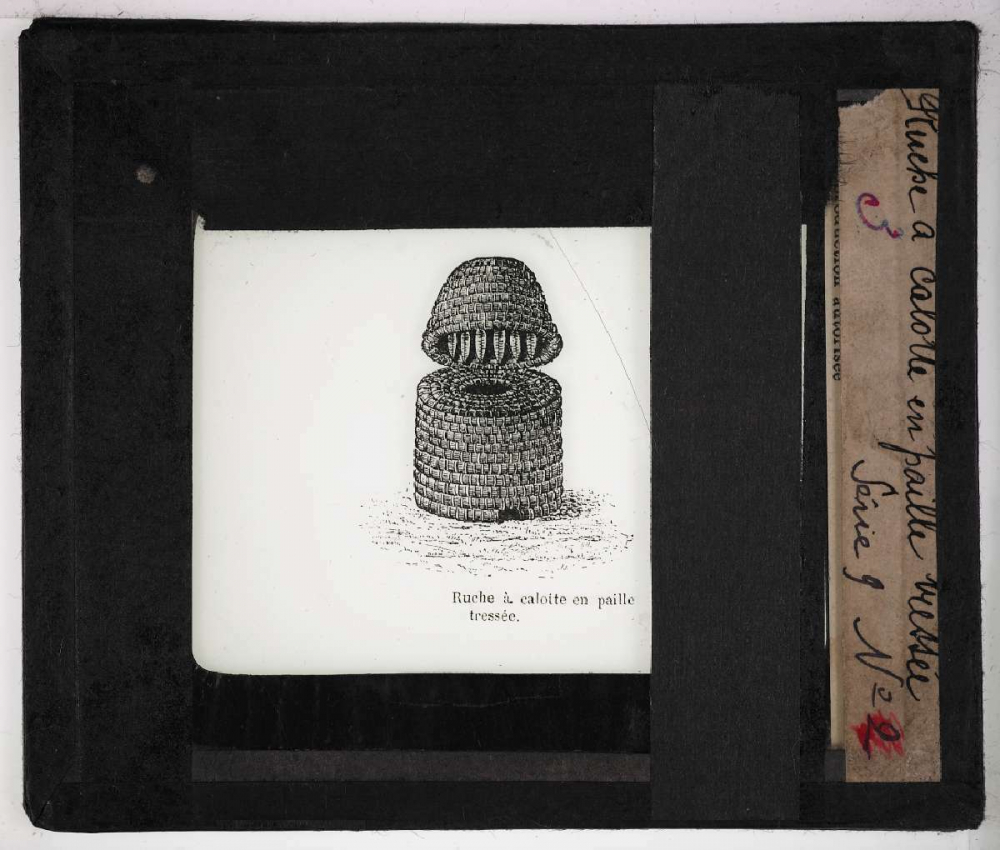 Ruche à calotte en paille
tressée.
Ruche à calotte en paille tressée
Série 9 Nº 2
3